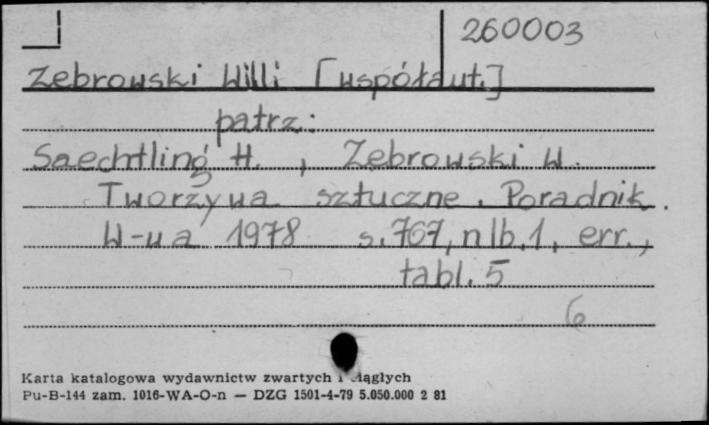 260003
Zebrowski Willi [współaut.]
patrz:
Saechtling H., Zebrowski W.
Tworzywa sztuczne. Poradnik.
W-wa 1978 s. 767, nlb. 1, err.,
tabl. 5
6
Karta katalogowa wydawnictw zwartych i ciągłych
Pu-B-144 zam. 1016-WA-O-n — DZG 1501-4-79 5.050.000 2 81